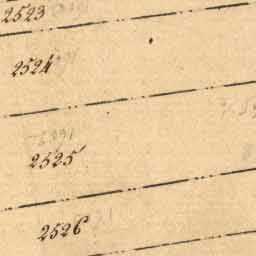 2523
2524
2525
2526